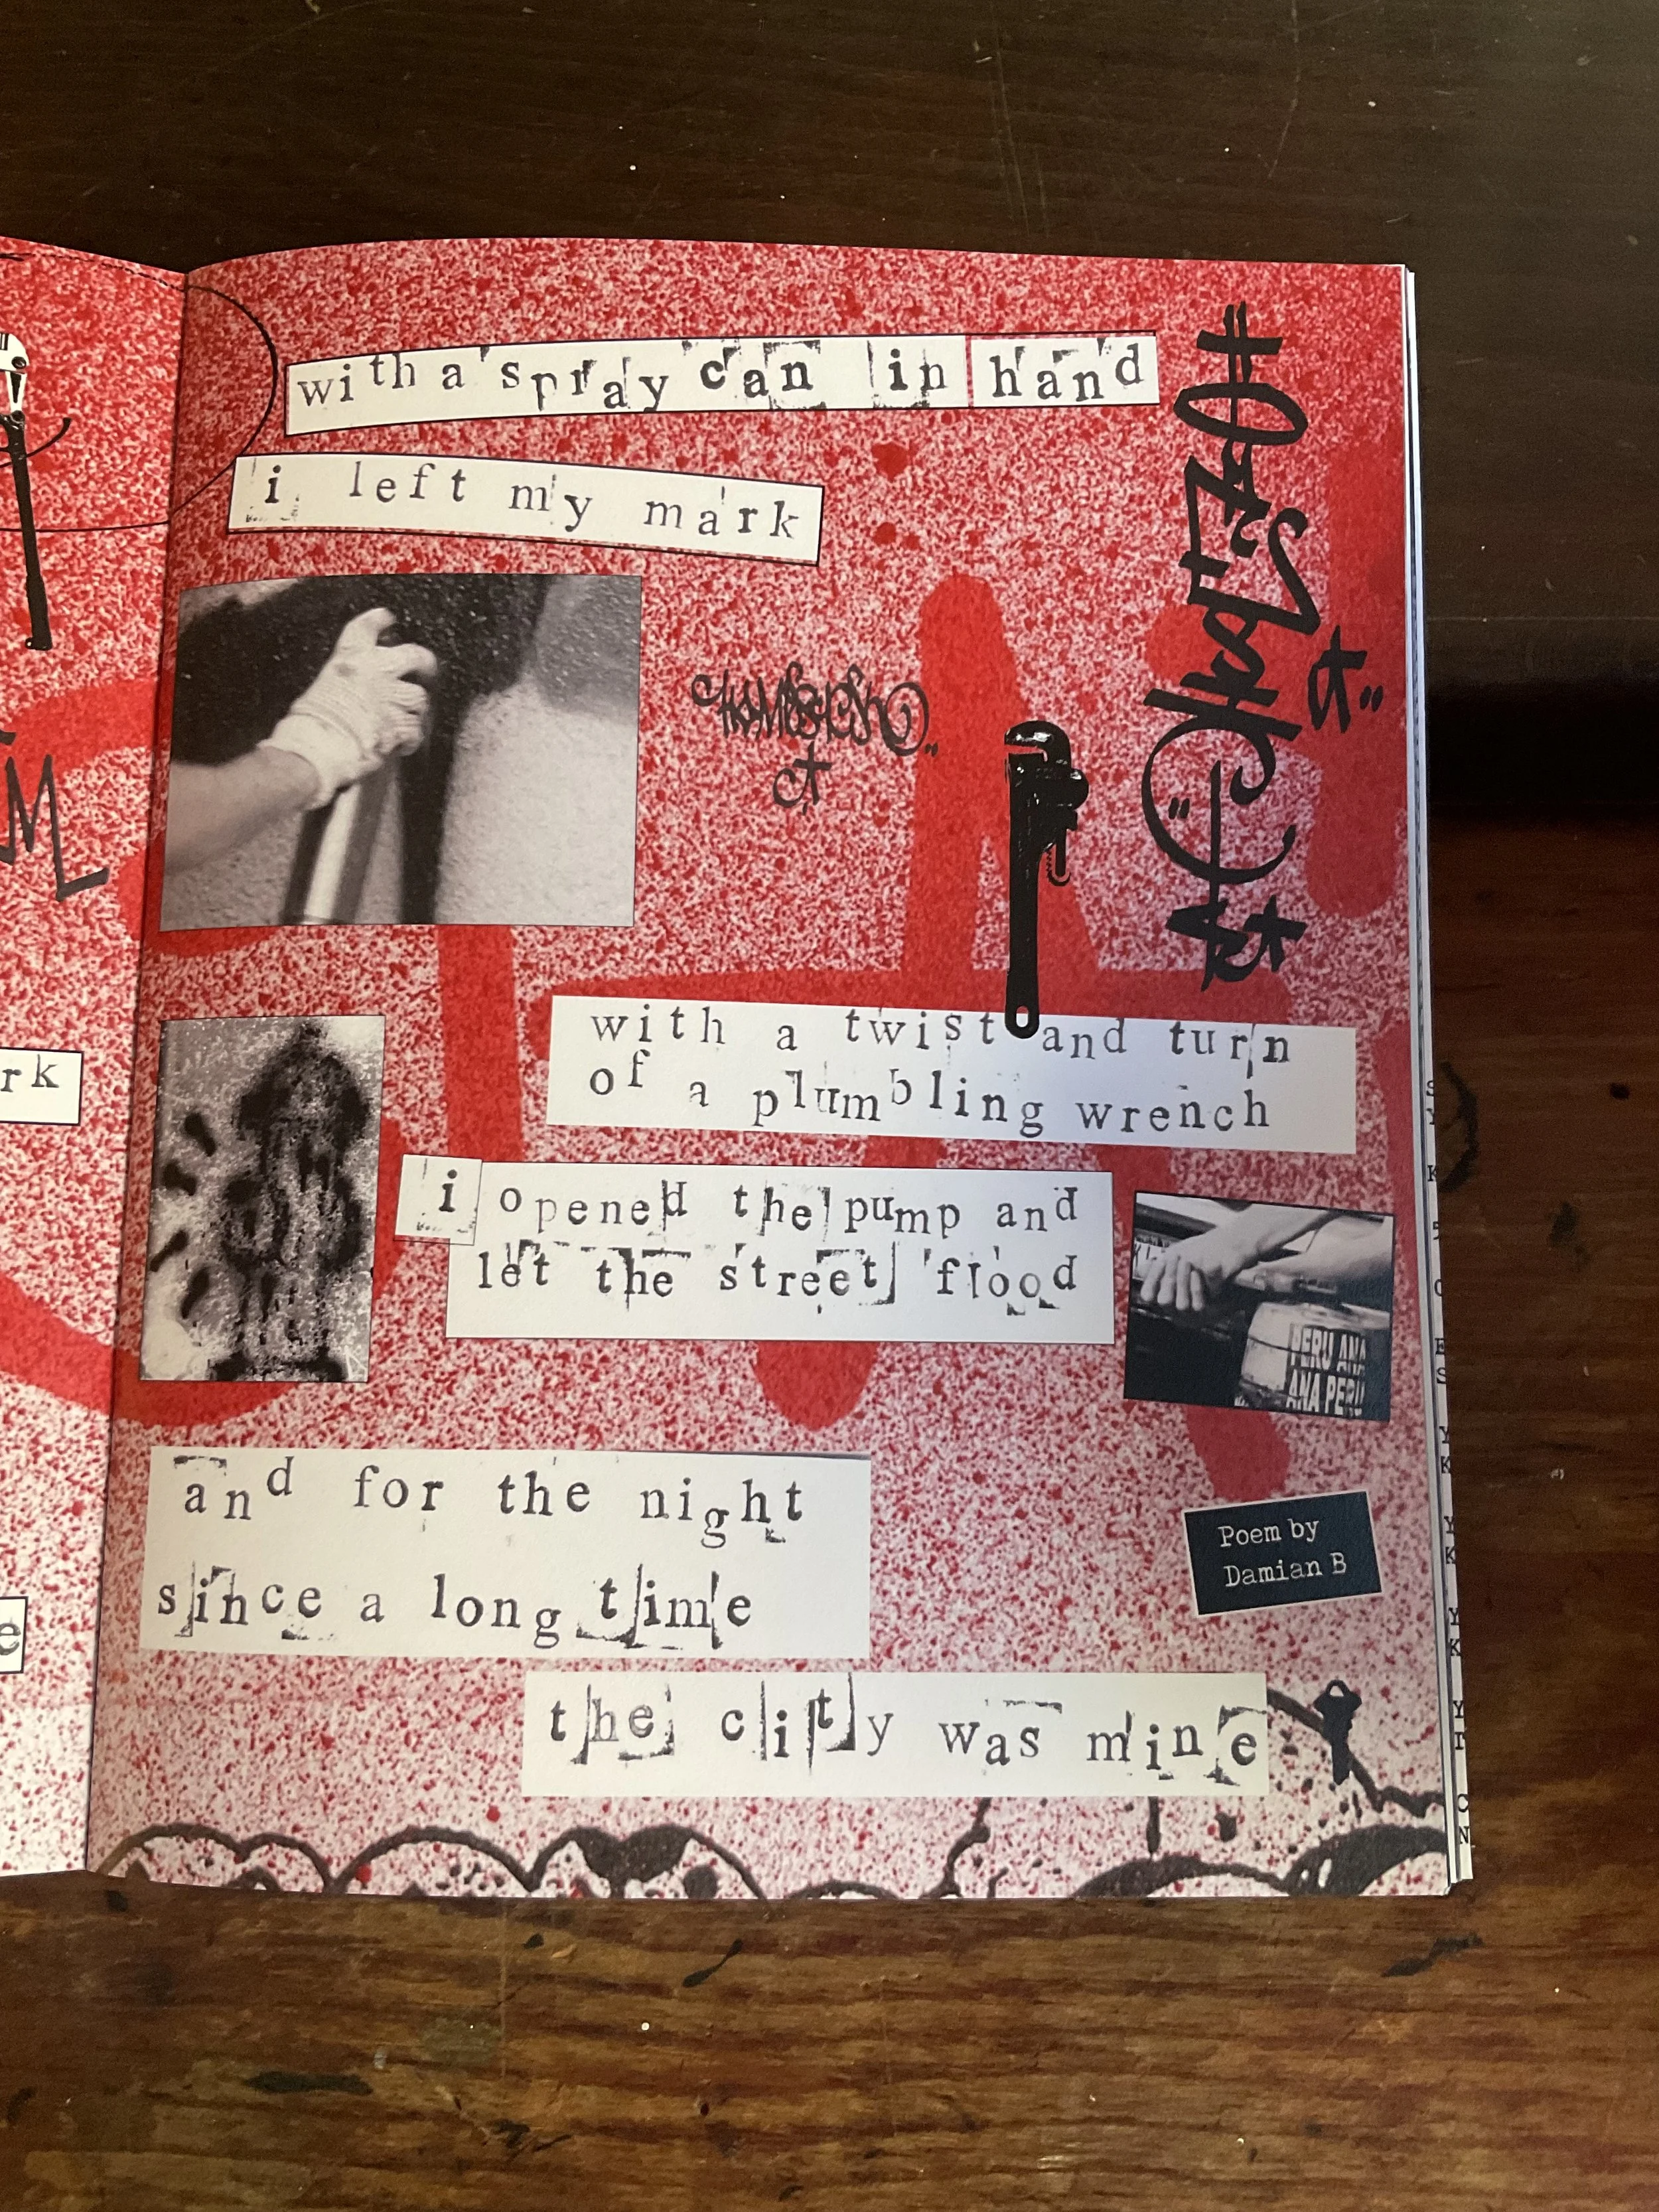 with a spray can in hand
i left my mark
with a twist and turn
of a plumbling wrench
i opened the pump and
let the street flood
PERU ANA
ANA PERU
and for the night
since a long time
the city was mine
Poem by
Damian B
rk
e